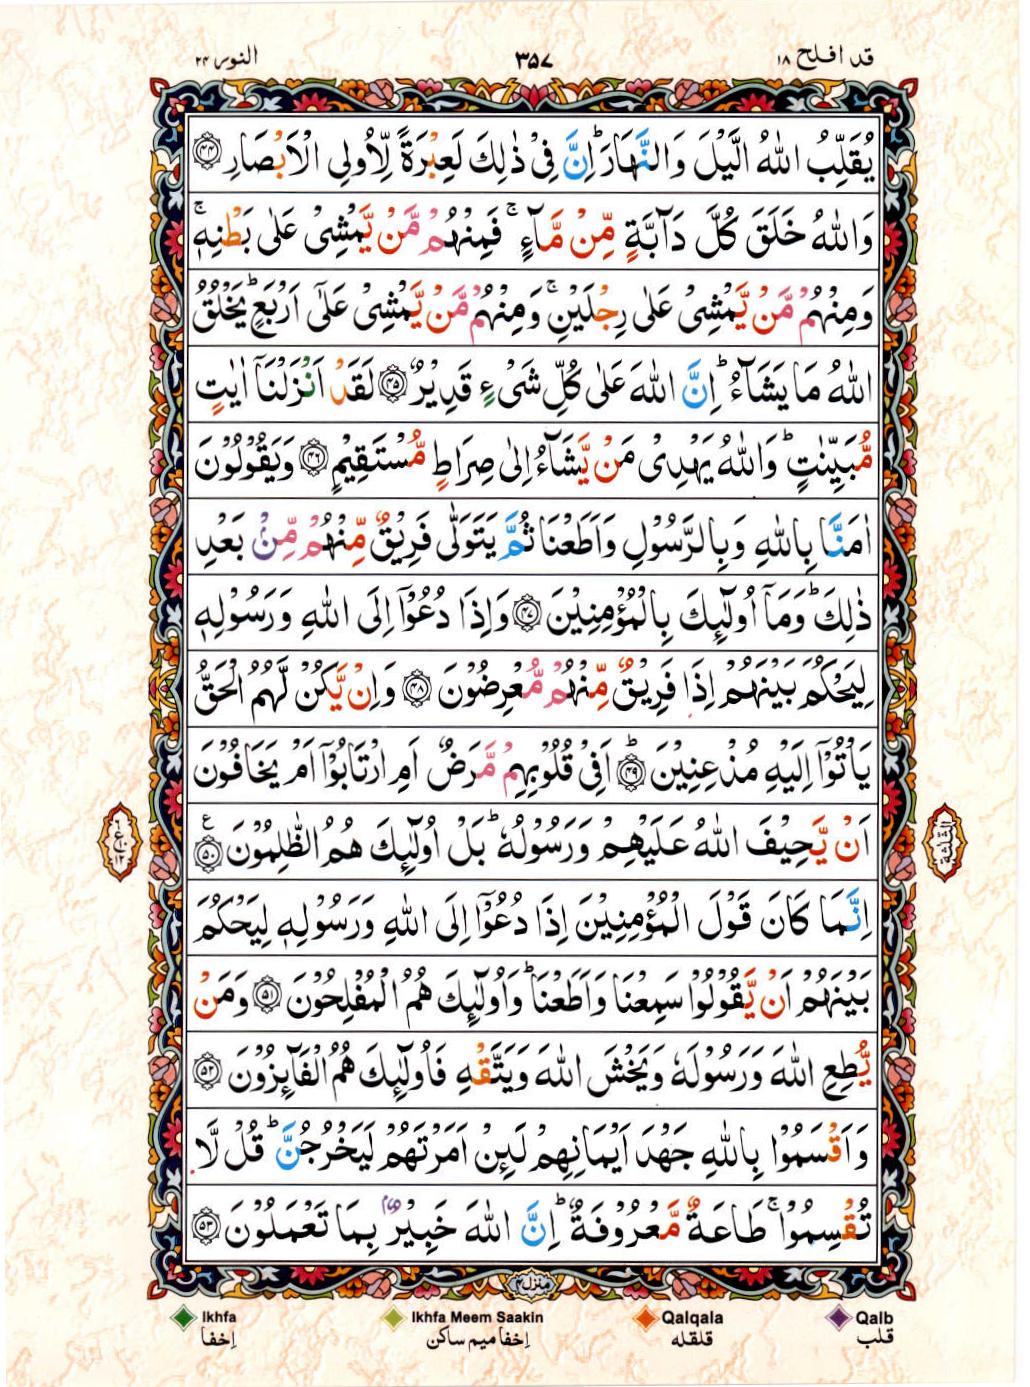 قد افلح ۱۸
۳۵۷
النور ۲۴
يُقَلِّبُ اللّٰهُ الَّيْلَ وَالنَّهَارَ ؕ اِنَّ فِىْ ذٰلِكَ لَعِبْرَةً لِّاُولِى الْاَبْصَارِ ﴿۴۴﴾
وَاللّٰهُ خَلَقَ كُلَّ دَآبَّةٍ مِّنْ مَّآءٍ ۚ فَمِنْهُمْ مَّنْ يَّمْشِىْ عَلٰى بَطْنِهٖ ۚ
وَمِنْهُمْ مَّنْ يَّمْشِىْ عَلٰى رِجْلَيْنِ ۚ وَمِنْهُمْ مَّنْ يَّمْشِىْ عَلٰٓى اَرْبَعٍ ؕ يَخْلُقُ
اللّٰهُ مَا يَشَآءُ ؕ اِنَّ اللّٰهَ عَلٰى كُلِّ شَىْءٍ قَدِيْرٌ ﴿۴۵﴾ لَقَدْ اَنْزَلْنَاۤ اٰيٰتٍ
مُّبَيِّنٰتٍ ؕ وَاللّٰهُ يَهْدِىْ مَنْ يَّشَآءُ اِلٰى صِرَاطٍ مُّسْتَقِيْمٍ ﴿۴۶﴾ وَيَقُوْلُوْنَ
اٰمَنَّا بِاللّٰهِ وَبِالرَّسُوْلِ وَاَطَعْنَا ثُمَّ يَتَوَلّٰى فَرِيْقٌ مِّنْهُمْ مِّنْۢ بَعْدِ
ذٰلِكَ ؕ وَمَاۤ اُولٰٓئِكَ بِالْمُؤْمِنِيْنَ ﴿۴۷﴾ وَاِذَا دُعُوْۤا اِلَى اللّٰهِ وَرَسُوْلِهٖ
لِيَحْكُمَ بَيْنَهُمْ اِذَا فَرِيْقٌ مِّنْهُمْ مُّعْرِضُوْنَ ﴿۴۸﴾ وَاِنْ يَّكُنْ لَّهُمُ الْحَقُّ
يَاْتُوْۤا اِلَيْهِ مُذْعِنِيْنَ ؕ ﴿۴۹﴾ اَفِىْ قُلُوْبِهِمْ مَّرَضٌ اَمِ ارْتَابُوْۤا اَمْ يَخَافُوْنَ
اَنْ يَّحِيْفَ اللّٰهُ عَلَيْهِمْ وَرَسُوْلُهٗ ؕ بَلْ اُولٰٓئِكَ هُمُ الظّٰلِمُوْنَ ﴿۵۰﴾ ع
اِنَّمَا كَانَ قَوْلَ الْمُؤْمِنِيْنَ اِذَا دُعُوْۤا اِلَى اللّٰهِ وَرَسُوْلِهٖ لِيَحْكُمَ
بَيْنَهُمْ اَنْ يَّقُوْلُوْا سَمِعْنَا وَاَطَعْنَا ؕ وَاُولٰٓئِكَ هُمُ الْمُفْلِحُوْنَ ﴿۵۱﴾ وَمَنْ
يُّطِعِ اللّٰهَ وَرَسُوْلَهٗ وَيَخْشَ اللّٰهَ وَيَتَّقْهِ فَاُولٰٓئِكَ هُمُ الْفَآئِزُوْنَ ﴿۵۲﴾
وَاَقْسَمُوْا بِاللّٰهِ جَهْدَ اَيْمَانِهِمْ لَئِنْ اَمَرْتَهُمْ لَيَخْرُجُنَّ ؕ قُلْ لَّا
تُقْسِمُوْا ۚ طَاعَةٌ مَّعْرُوْفَةٌ ؕ اِنَّ اللّٰهَ خَبِيْرٌۢ بِمَا تَعْمَلُوْنَ ﴿۵۳﴾
الثلثة
۶ ع ۱۲
منزل ۴
Ikhfa Ikhfa Meem Saakin Qalqala Qalb
إخفا إخفا ميم ساكن قلقله قلب